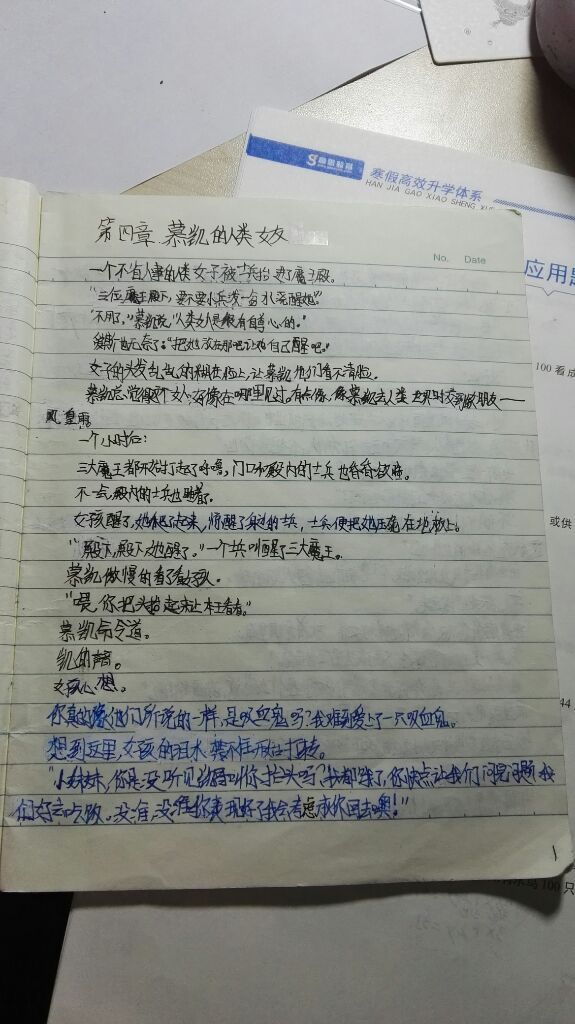 寒假高效升学体系
HAN JIA GAO XIAO SHENG XU
No. Date
应用题
100 看成
或供
44
100 只
第四章 慕凯的人类女友
一个不省人事的人类女子被士兵抬进了魔王殿。
"三位魔王殿下,要不要小兵拨一台水泼醒她"
"不用了,"慕凯说,"人类女人是很有自尊心的。"
"把她放在那吧让她自己醒吧。"
女子的头发乱乱的糊在脸上,让慕凯他们看不清脸。
慕凯总觉得这个女人好像在哪里见过,有点像,像慕凯去人类世界时交到的女朋友——
凤皇雨
一个小时后:
三大魔王都不禁打起了呼噜,门口和殿内的士兵也昏昏欲睡。
不一会,殿内的士兵也睡着了。
女孩醒了,她爬了起来,惊醒了身边的士兵,士兵便把她压跪在地板上。
"殿下,殿下,她醒了。"一个士兵叫醒了三大魔王。
慕凯傲慢的看了看女孩。
"喂,你把头抬起来让本王看看。"
慕凯命令道。
凯的声音。
女孩心想。
你真的像他们所说的一样,是吸血鬼吗?我难到爱上了一只吸血鬼。
想到这里,女孩的泪水禁不住
"小妹妹,你是没听见 叫你抬头吗?我都饿了,你快点让我们问完问题 我
们好去吃饭。没准 你表现好了我会考虑放你回去噢!"
1